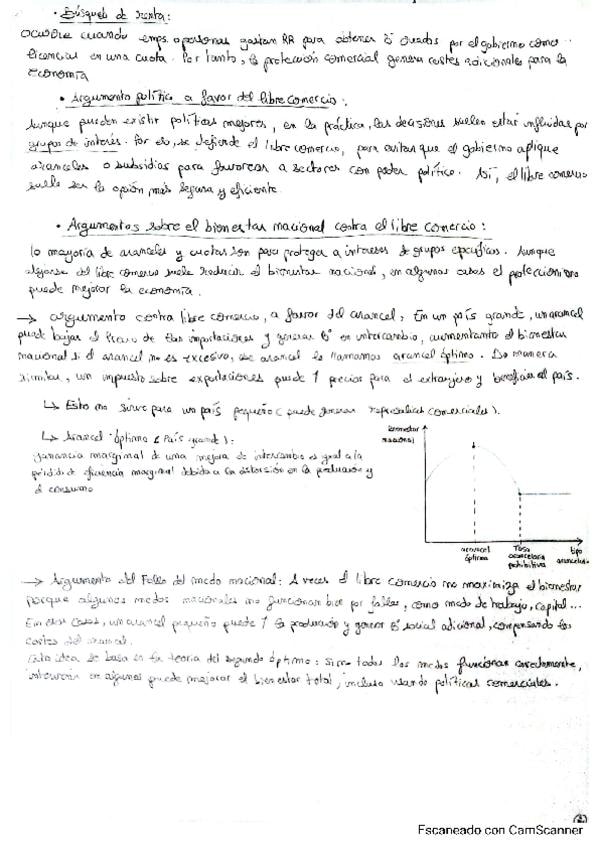 · Búsqueda de renta:
ocurre cuando emps. o personas gastan RR para obtener Bº creados por el gobierno como
licencias en una cuota. Por tanto, la protección comercial genera costes adicionales para la
economía
· Argumento político a favor del libre comercio:
Aunque pueden existir políticas mejores, en la práctica, las decisiones suelen estar influidas por
grupos de interés. Por eso, se defiende el libre comercio, para evitar que el gobierno aplique
aranceles o subsidios para favorecer a sectores con poder político. Así, el libre comercio
suele ser la opción más segura y eficiente.
· Argumentos sobre el bienestar nacional contra el libre comercio:
la mayoría de aranceles y cuotas son para proteger a intereses de grupos específicos. Aunque
alejarse del libre comercio suele reducir el bienestar nacional, en algunos casos el proteccionismo
puede mejorar la economía.
→ argumento contra libre comercio, a favor del arancel, En un país grande, un arancel
puede bajar el precio de las importaciones y generar Bº en intercambio, aumentando el bienestar
nacional si el arancel no es excesivo, ese arancel lo llamamos arancel óptimo. De manera
similar, un impuesto sobre exportaciones puede ↑ precios para el extranjero y beneficiar al país.
↳ Esto no sirve para un país pequeño (puede generar represalias comerciales).
↳ Arancel óptimo (País grande):
Ganancia marginal de una mejora de intercambio es igual a la
pérdida de eficiencia marginal debida a la distorsión en la producción y
el consumo
bienestar
nacional
arancel
óptimo
Tasa
arancelaria
prohibitiva
tipo
arancelario
→ Argumento del Fallo del mcdo nacional: A veces el libre comercio no maximiza el bienestar
porque algunos mcdos nacionales no funcionan bien por fallos, como mcdo de trabajo, capital...
En esos casos, un arancel pequeño puede ↑ la producción y generar Bº social adicional, compensando los
costes del arancel.
Esta idea se basa en la teoría del segundo óptimo: si no todos los mcdos funcionan correctamente,
intervenir en algunos puede mejorar el bienestar total, incluso usando políticas comerciales.
(2)
Escaneado con CamScanner